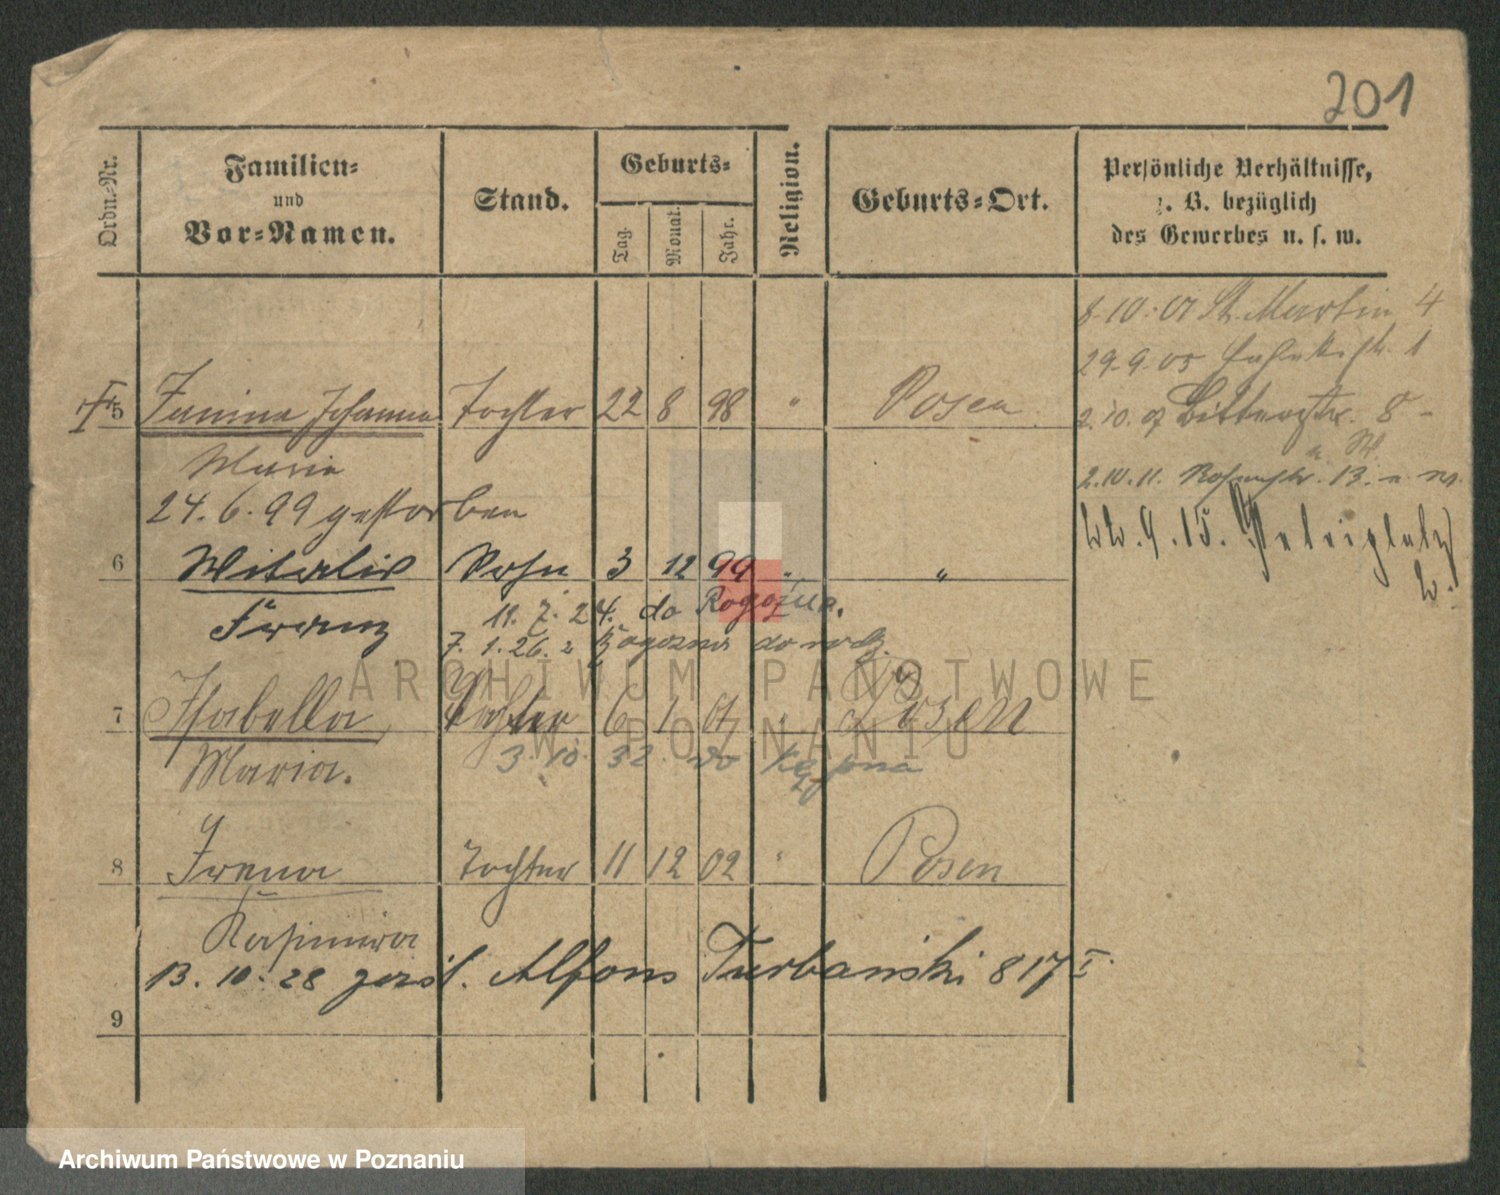 201
Ordn.-Nr.
Familien-
und
Vor-Namen.
Stand.
Geburts-
Tag.
Monat.
Jahr.
Religion.
Geburts-Ort.
Persönliche Verhältnisse,
z. B. bezüglich
des Gewerbes u. s. w.
8.10.01 St. Martin 4
29.9.05
5 Janina Johanna Tochter 22 8 98 " Posen
2.10.07 Bitterstr. 8
Maria
2.10.11. 13.
24.6.99 gestorben
22.9.15. Petriplatz
2.
6 Witalis Sohn 3 12 99 " "
Franz
11.7.24. do Rogoźna.
7.1.26. z Rogozna do
7 Isabella Tochter 6 1 01 " Posen
Maria.
3.10.32. do
8 Irena Tochter 11 12 02 " Posen
Kasimira
13.10.28 Alfons Turbański 817 I.
9
ARCHIWUM PAŃSTWOWE
W POZNANIU
Archiwum Państwowe w Poznaniu